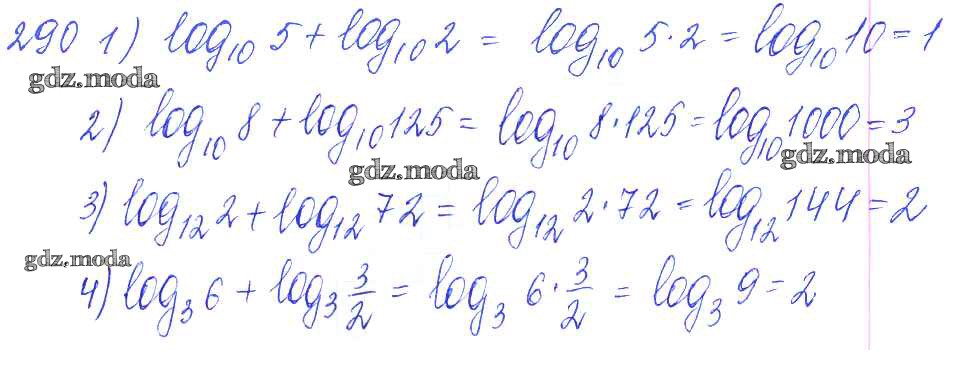 290 1) log₁₀ 5 + log₁₀ 2 = log₁₀ 5·2 = log₁₀ 10 = 1
gdz.moda
2) log₁₀ 8 + log₁₀ 125 = log₁₀ 8·125 = log₁₀ 1000 = 3
gdz.moda
gdz.moda
3) log₁₂ 2 + log₁₂ 72 = log₁₂ 2·72 = log₁₂ 144 = 2
gdz.moda
4) log₃ 6 + log₃ 3/2 = log₃ 6·3/2 = log₃ 9 = 2